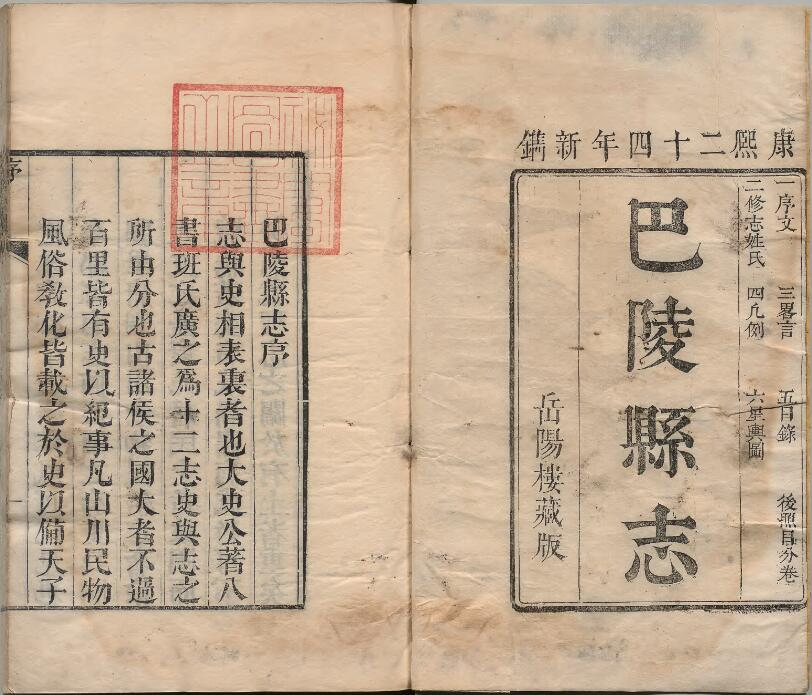 康熙二十四年新鐫
一序文 三畧言 五目錄 後照目分卷
二修志姓氏 四凡例 六星輿圖
巴陵縣志
岳陽樓藏版
巴陵縣志序
志與史相表裏者也大史公著八
書班氏廣之爲十二志史與志之
所由分也古諸侯之國大者不過
百里皆有史以紀事凡山川民物
風俗敎化皆載之於史以備天子
序